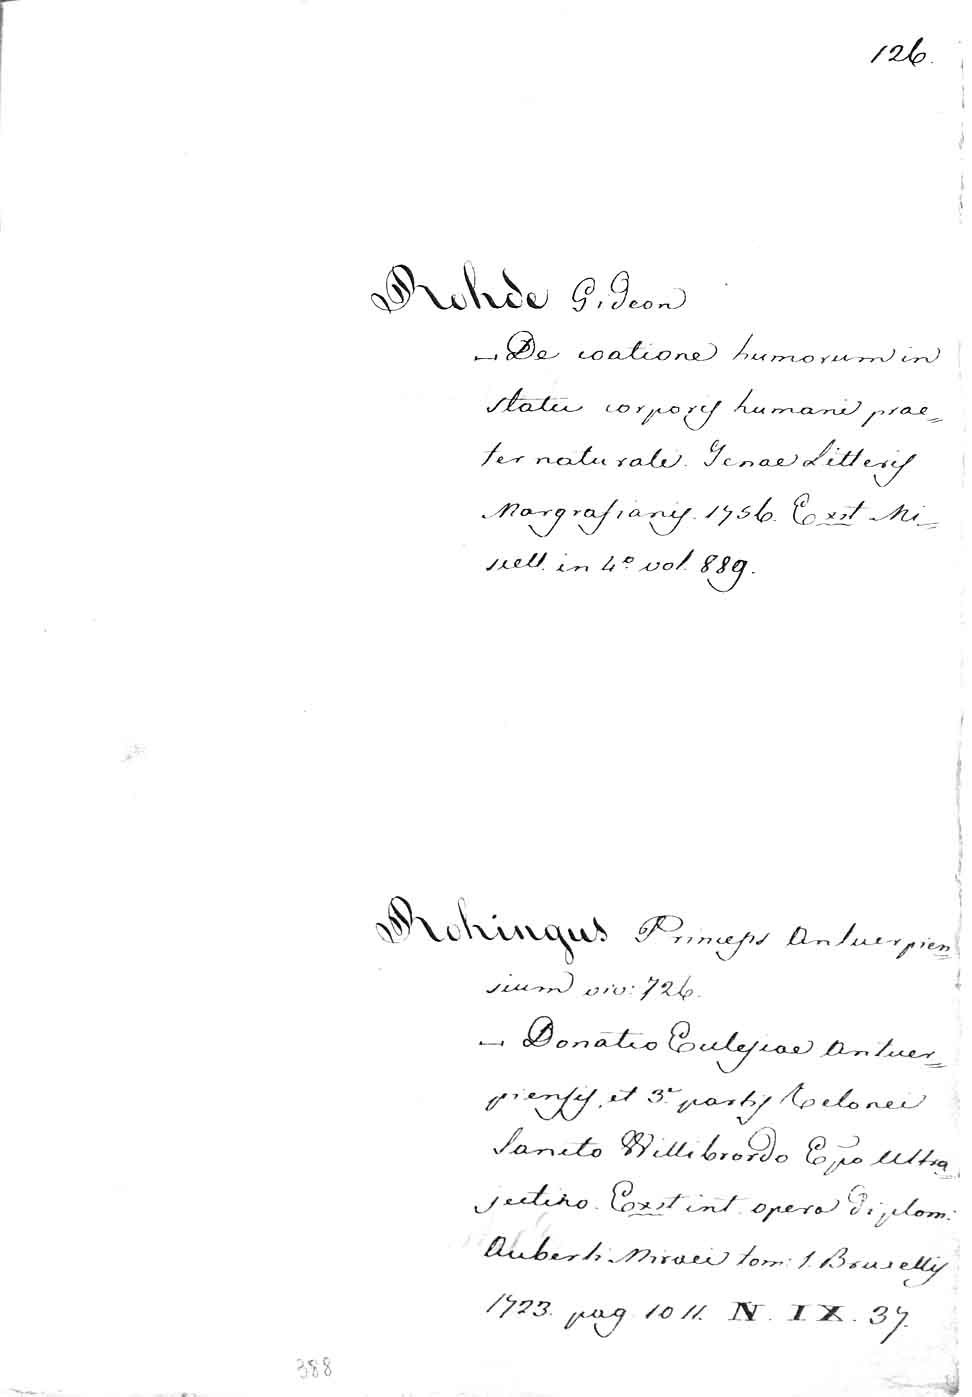 126.
Rohde Gideon
— De coatione humorum in
statu corporis humani prae=
ter naturali. Jenae Litteris
Margrafianis. 1756. Exst Mi=
scell. in 4º vol. 889.
Rohingus Princeps Antuerpien=
sium viv: 726.
— Donatio Ecclesiae Antuer=
piensis, et 3ae partis Telonei
Sancto Willibrordo Epo Ultra=
jectino. Exst int. opera diplom:
Auberti Miraei tom: 1. Bruxellis
1723. pag. 10 11. N. IX. 37.
388